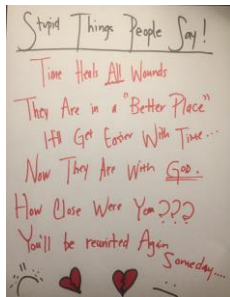 Stupid Things People Say!
Time Heals All Wounds
They Are in a "Better Place"
It'll Get Easier With Time...
Now They Are With God.
How Close Were You???
You'll be reunited Again
Someday....